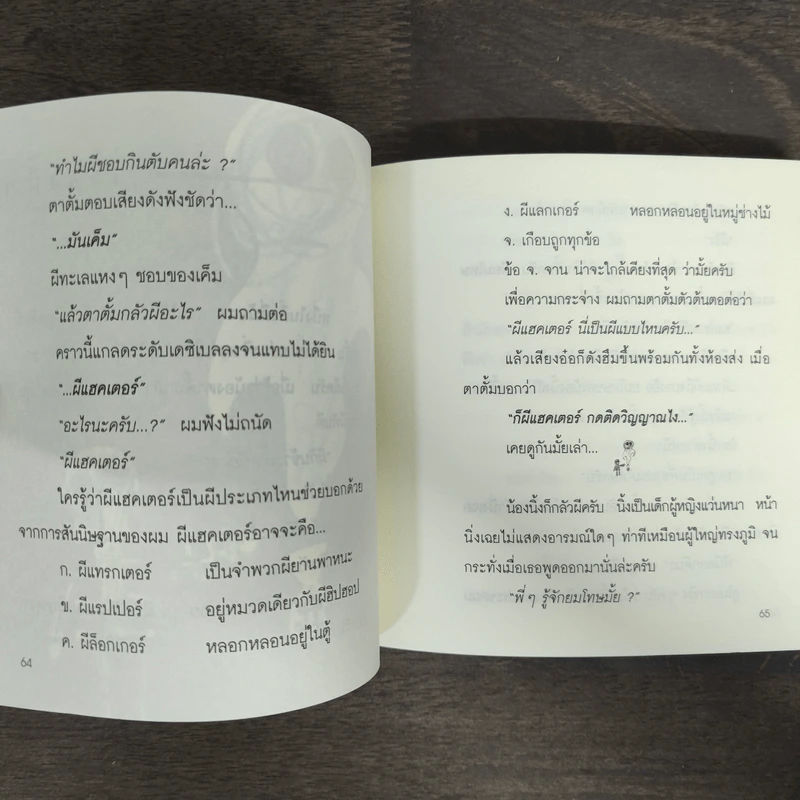 "ทำไมผีชอบกินตับคนล่ะ ?"
ตาตั้มตอบเสียงดังฟังชัดว่า...
"...มันเค็ม"
ผีทะเลแหงๆ ชอบของเค็ม
"แล้วตาตั้มกลัวผีอะไร" ผมถามต่อ
คราวนี้แกลดระดับเดซิเบลลงจนแทบไม่ได้ยิน
"...ผีแฮคเตอร์"
"อะไรนะครับ...?" ผมฟังไม่ถนัด
"ผีแฮคเตอร์"
ใครรู้ว่าผีแฮคเตอร์เป็นผีประเภทไหนช่วยบอกด้วย
จากการสันนิษฐานของผม ผีแฮคเตอร์อาจจะคือ...
ก. ผีแทรกเตอร์ เป็นจำพวกผียานพาหนะ
ข. ผีแรปเปอร์ อยู่หมวดเดียวกับผีฮิปฮอป
ค. ผีล็อกเกอร์ หลอกหลอนอยู่ในตู้
64
ง. ผีแลกเกอร์ หลอกหลอนอยู่ในหมู่ช่างไม้
จ. เกือบถูกทุกข้อ
ข้อ จ. จาน น่าจะใกล้เคียงที่สุด ว่ามั้ยครับ
เพื่อความกระจ่าง ผมถามตาตั้มตัวต้นตอต่อว่า
"ผีแฮคเตอร์ นี่เป็นผีแบบไหนครับ..."
แล้วเสียงอ๋อก็ดังฮึมขึ้นพร้อมกันทั้งห้องส่ง เมื่อ
ตาตั้มบอกว่า
"ก็ผีแฮคเตอร์ กดติดวิญญาณไง..."
เคยดูกันมั้ยเล่า...
น้องนิ้งก็กลัวผีครับ นิ้งเป็นเด็กผู้หญิงแว่นหนา หน้า
นิ่งเฉยไม่แสดงอารมณ์ใดๆ ท่าทีเหมือนผู้ใหญ่ทรงภูมิ จน
กระทั่งเมื่อเธอพูดออกมานั่นล่ะครับ
"พี่ๆ รู้จักยมโทษมั้ย ?"
65